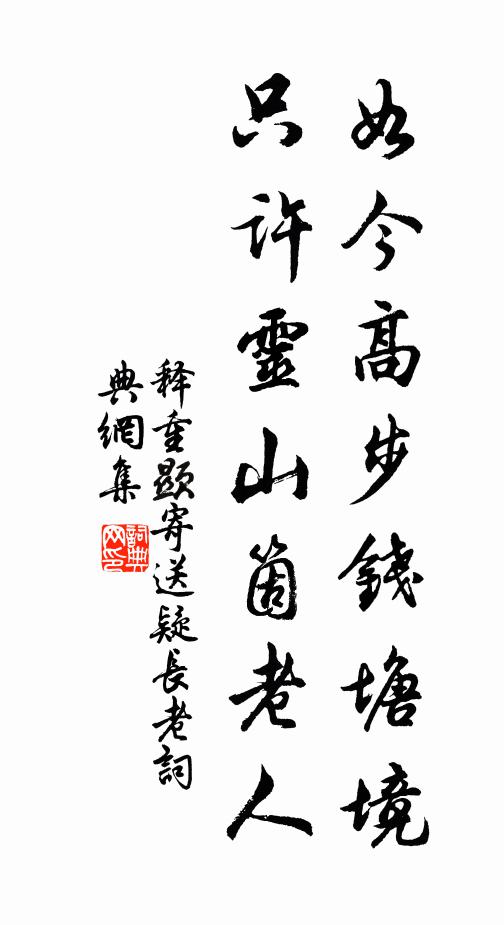 如今高步錢塘境
只許靈山箇老人
释重顯寄送疑長老詞
典網集
詞典网印